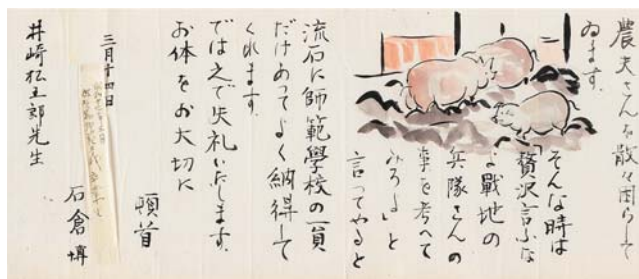 農夫さんを散々困らして
ゐます。
そんな時は
「贅沢言ふな
よ戰地の
兵隊さんの
事を考へて
みろよ」と
言ってやると
流石に師範學校の一員
だけあってよく納得して
くれます。
では之で失礼いたします。
お体をお大切に
頓首
三月十四日
石倉
井崎
五郎先生